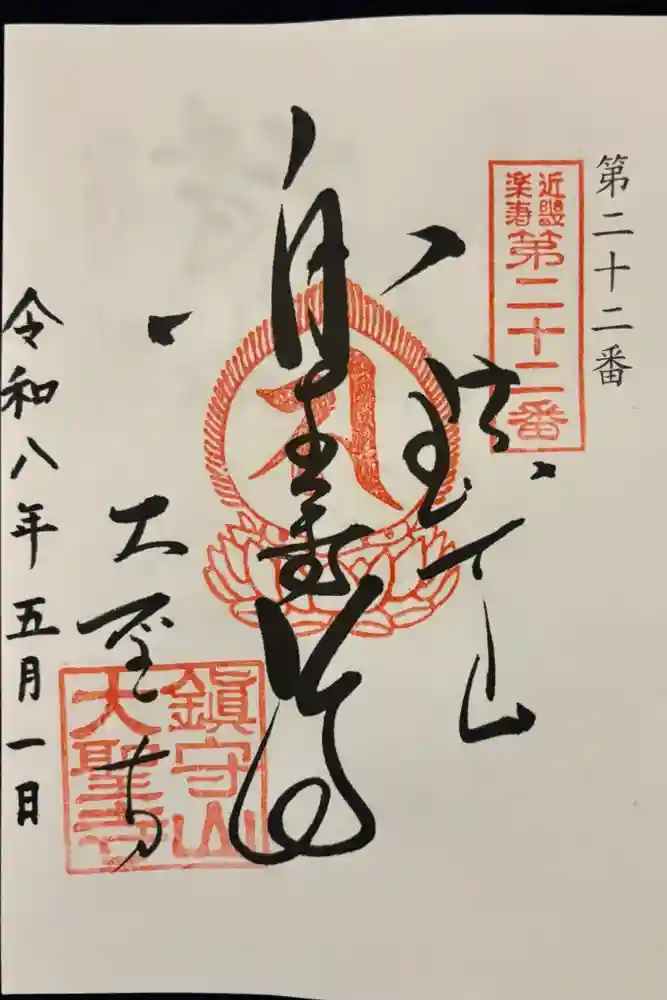 第二十二番
近畿
楽寿
第二十二番
鎮守山
大聖寺
鎮守山
大聖寺
令和八年五月一日